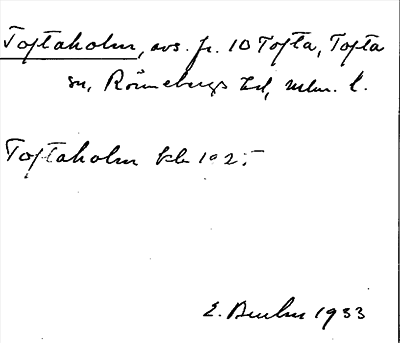 Toftaholm, avs. fr. 10 Tofta, Tofta
sn, Rönnebergs hd, Mlm. l.
Toftaholm kb 1:2;
E. 1933